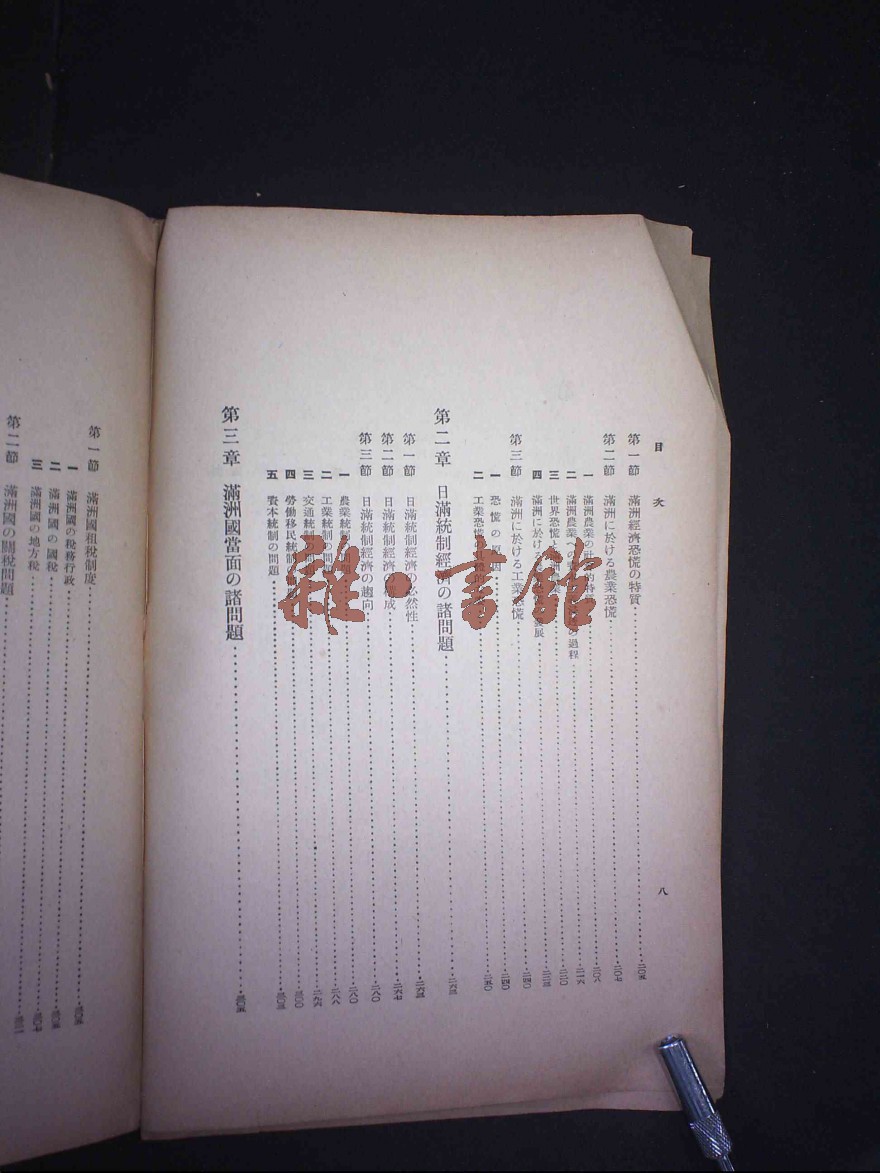 目次
八
第一節 滿洲經濟恐慌の特質 二〇五
第二節 滿洲に於ける農業恐慌 二〇七
一 滿洲農業の 的特質 二〇八
二 滿洲農業への の過程 二一六
三 世界恐慌と 二二〇
四 滿洲に於ける 發展 二三五
第三節 滿洲に於ける工業恐慌 二四〇
一 恐慌の 因 二四〇
二 工業恐慌 的 二五〇
第二章 日滿統制經濟の諸問題 二六五
第一節 日滿統制經濟の必然性 二六五
第二節 日滿統制經濟の 成 二六七
第三節 日滿統制經濟の趨向 二八〇
一 農業統制の問題 二八〇
二 工業統制の問題 二八八
三 交通統制の問題 二九六
四 勞働移民統制 三〇〇
五 資本統制の問題 三〇五
第三章 滿洲國當面の諸問題 三〇五
第一節 滿洲國租稅制度 三〇五
一 滿洲國の稅務行政
二 滿洲國の國稅 三〇五
三 滿洲國の地方稅 三〇七
第二節 滿洲國の關稅問題
雜·書館